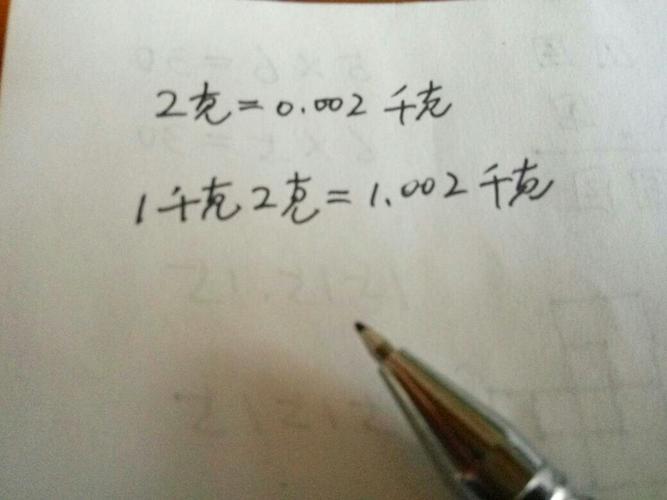 2克=0.002千克
1千克2克=1.002千克